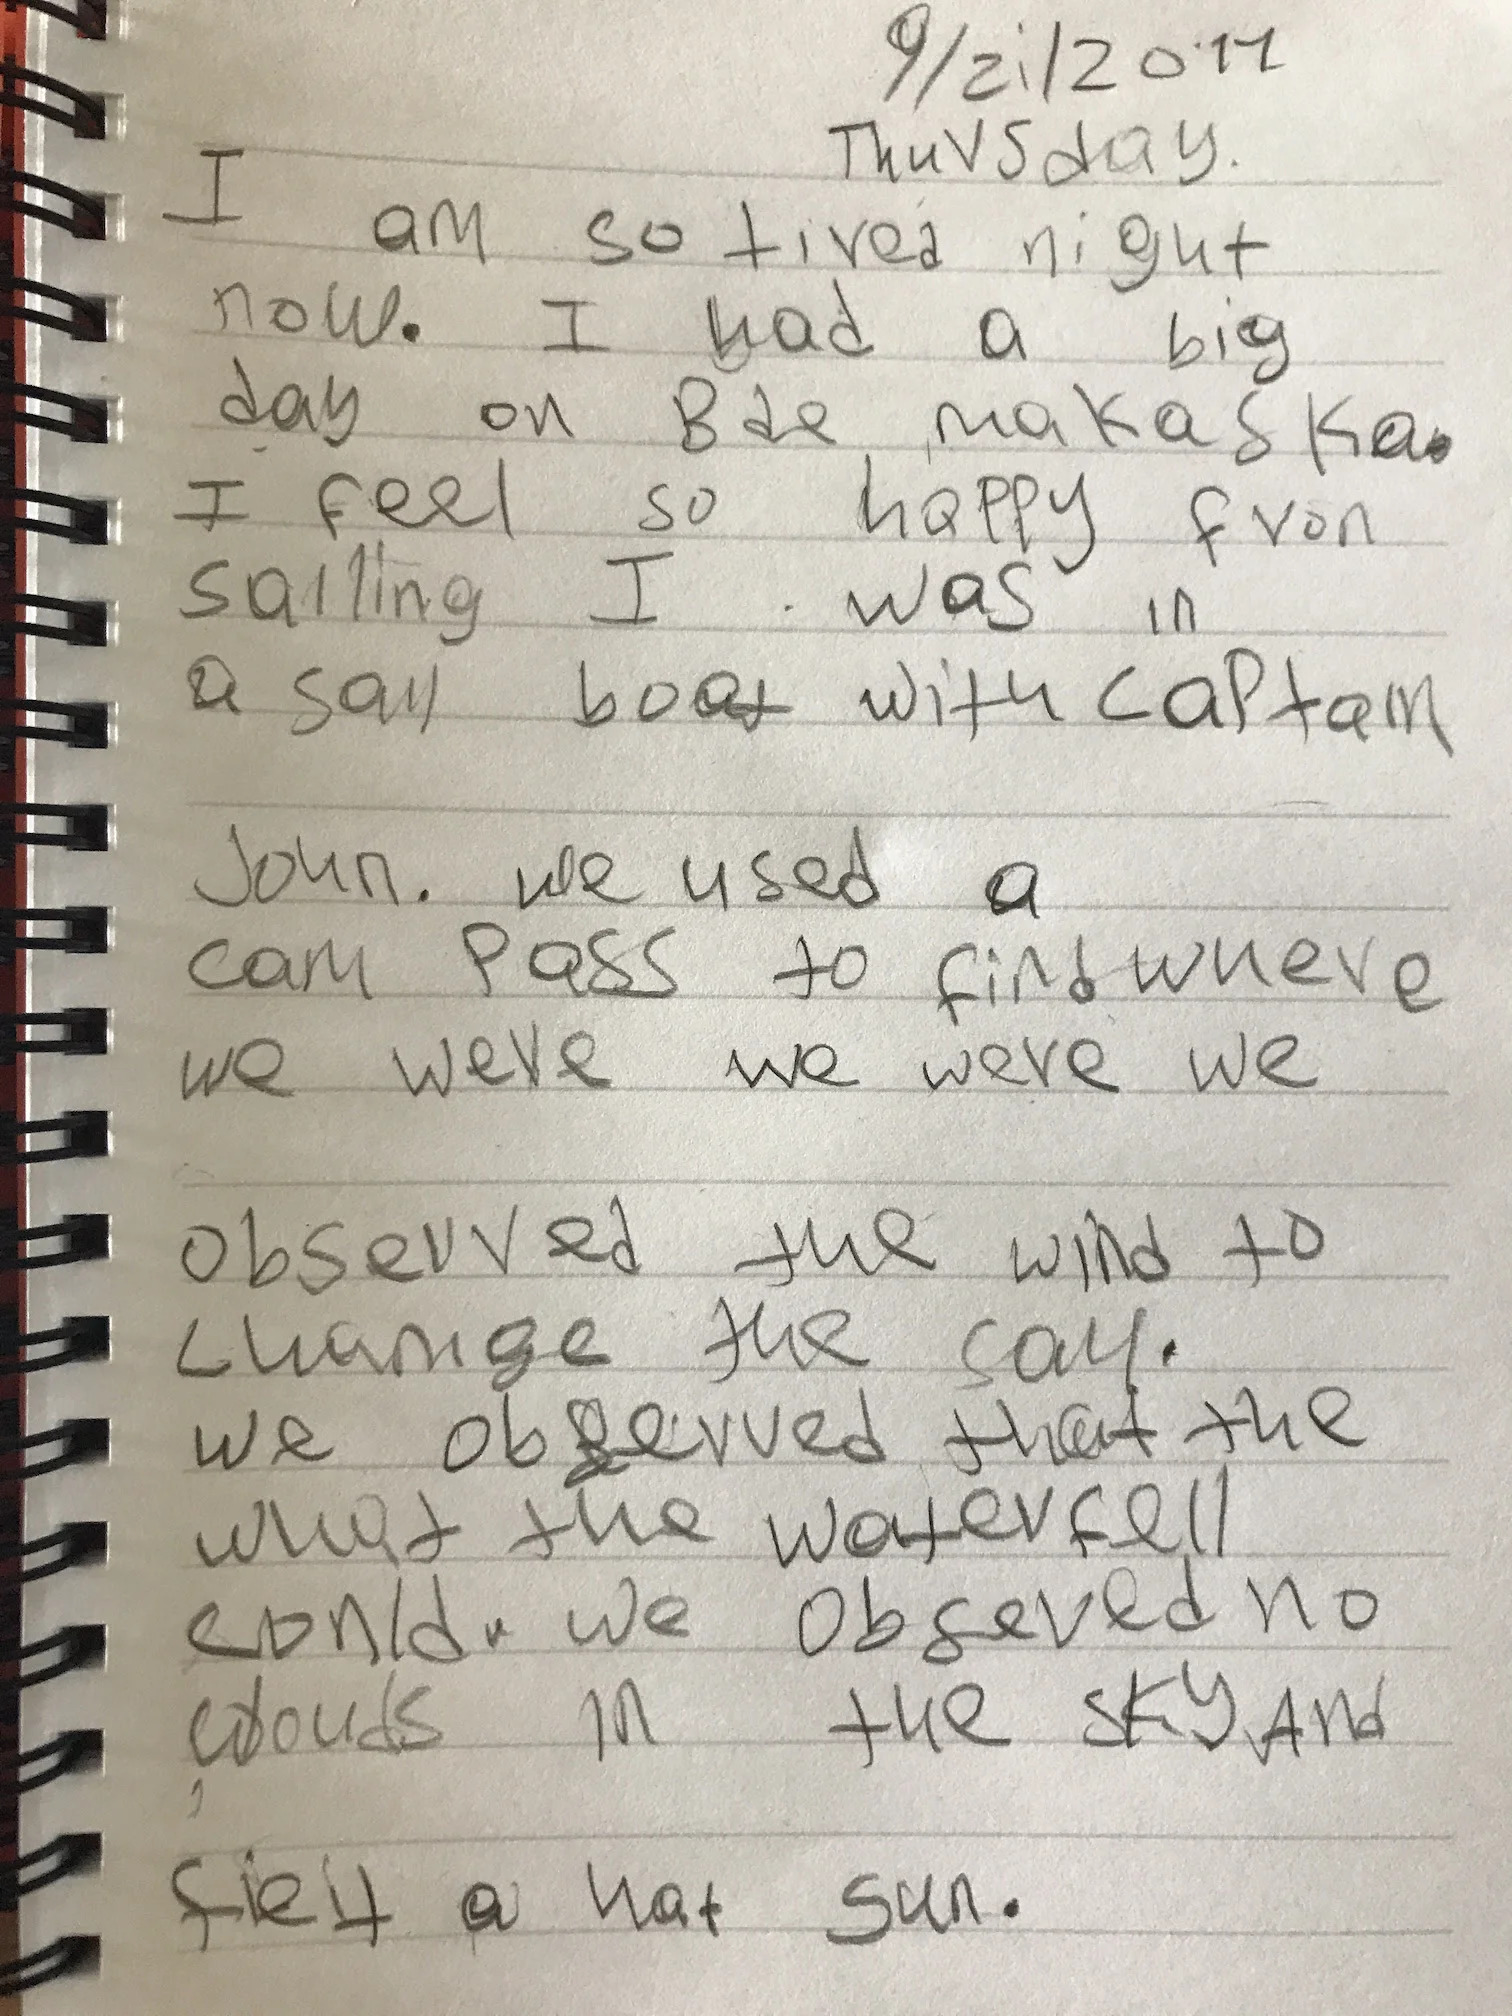 9/21/2017
Thursday.
I am so tired night
now. I had a big
day on Bde makaska.
I feel so happy fron
sailing I was in
a sail boat with captain
John. we used a
cam pass to find where
we were we were we
observed the wind to
change the sail.
we observed that the
what the water fell
could. we observed no
clouds in the sky And
fielt a hat sun.